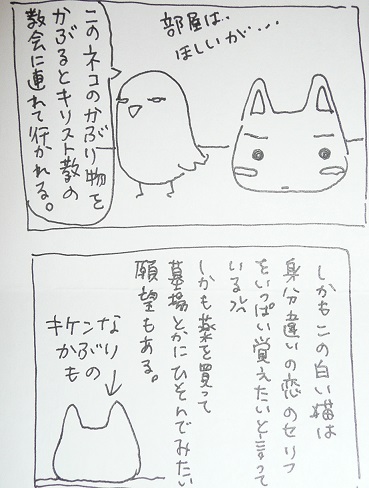 部屋は、
ほしいが・・・
このネコのかぶり物を
かぶるとキリスト教の
教会に連れて行かれる。
しかもこの白い猫は
身分違いの恋のセリフ
をいっぱい覚えたいと言って
いる
しかも薬を買って
墓場とかにひそんでみたい
願望もある。
キケンな
かぶり
もの